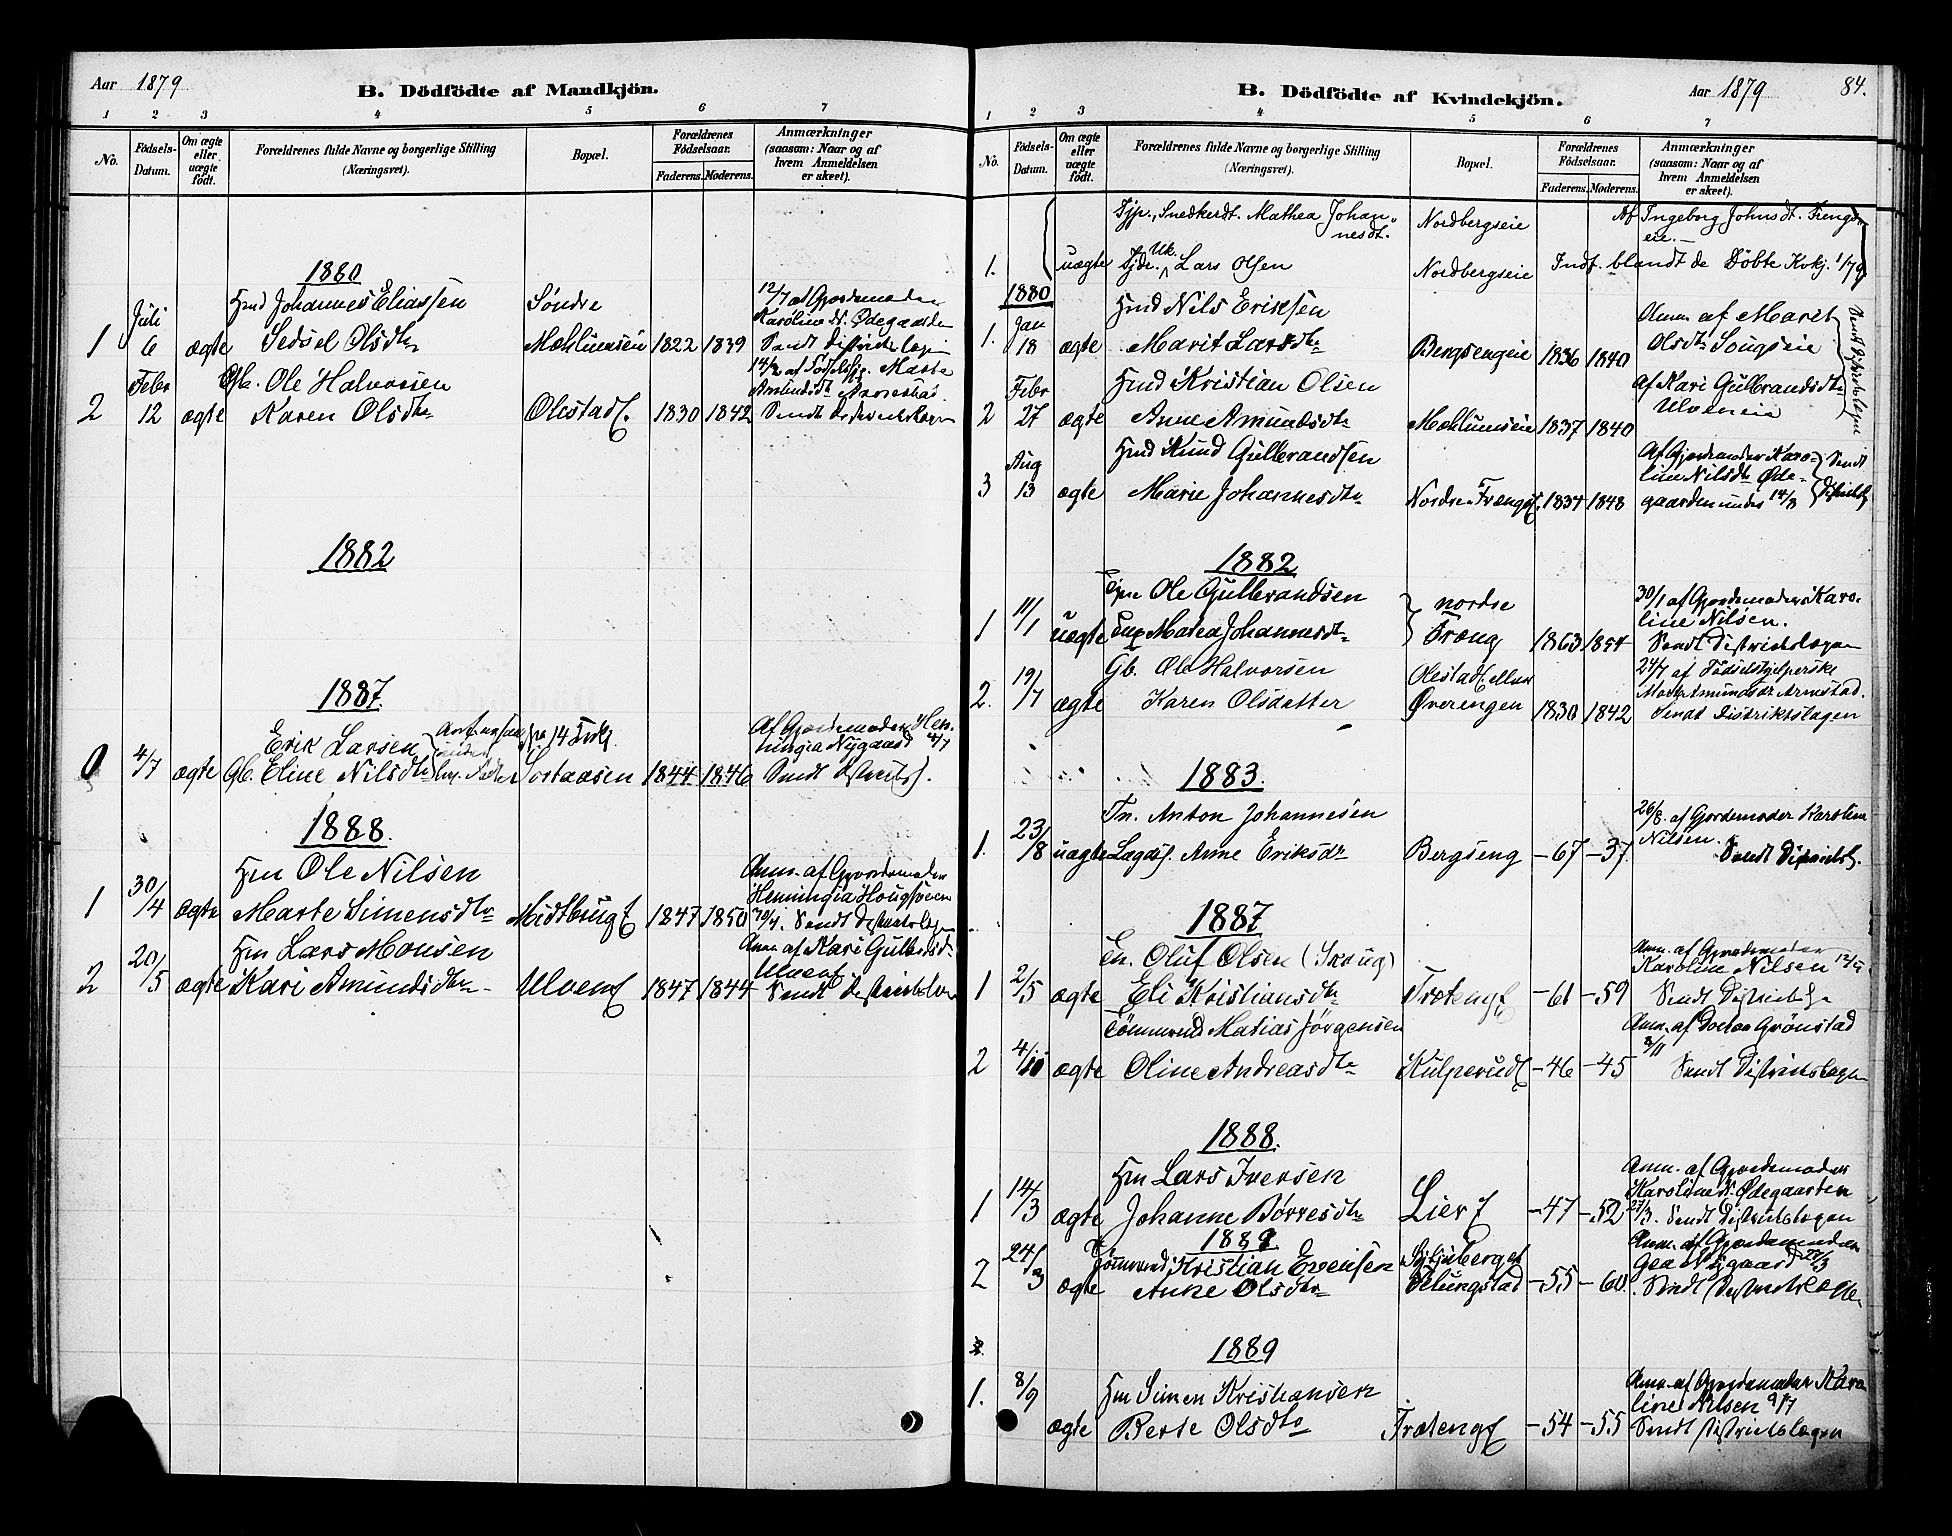 Aar 1879
B. Dödfödte af Mandkjön.
1 2 3 4 5 6 7
No.
Födsels-Datum.
Om ægte eller uægte födt.
Forældrenes fulde Navne og borgerlige Stilling
(Næringsvei).
Bopæl.
Forældrenes Födselsaar.
Faderens. Moderens.
Anmærkninger
(saasom: Naar og af
hvem Anmeldelsen
er skeet).
1880
Juli Hmd Johannes Eliassen Søndre 12/7 af Gjordemoder
Karoline N. Ødegaarden
1 6 ægte Sedsel Olsdtr Mæhlumseie 1822 1839 Sendt Distriktslægen
Febr Gb. Ole Halvorsen 14/2 af Marte
Amundsdt.
2 12 ægte Karen Olsdtr Olestad 1830 1842 Sendt Distriktslægen
1882
1887.
Erik Larsen Af Gjordemoder Hen-
ningia Nygaard 4/7
0 4/7 ægte Gb. Eline Nilsdtr Sortaasen 1844 1846 Sendt Distriktsl.
1888.
Hm Ole Nilsen Anm. af Gjordemoder
30/4 Henningia
1 ægte Marte Simensdtr Midtbrug 1847 1850 30/4. Sendt Distriktslægen
20/5 Hm Lars Monsen Anm. af Kari Gulbrsdt.
2 ægte Kari Amundsdtr Ulven 1847 1844 Sendt Distriktslæ
B. Dödfödte af Kvindekjön.
Aar 1879
84.
1 2 3 4 5 6 7
No.
Födsels-Datum.
Om ægte eller uægte födt.
Forældrenes fulde Navne og borgerlige Stilling
(Næringsvei).
Bopæl.
Forældrenes Födselsaar.
Faderens. Moderens.
Anmærkninger
(saasom: Naar og af
hvem Anmeldelsen
er skeet).
Tjp., Snedkerdt. Mathea Johan- Nordbergseie Af Ingeborg Johnsdt. Trengs-
nesdt. eie.
1. uægte Tjdr. Uk. Lars Olsen Nordbergseie Indf. blandt de Døbte Kvkj. 1/79
1880 Hmd Nils Eriksen Anm. af Maret
1. Jan 18 ægte Marit Larsdtr Bergsengeie 1836 1840 Olsdtr Sougseie
Sendt Distriktslægen
Febr Hmd Kristian Olsen af Kari Gulbrandsdtr
2 27 ægte Anne Amundsdtr Mæhlumseie 1837 1840 Ulveneie
Aug Hmd Knud Gulbrandsen Af Gjordemoder Karo-
line Nilsdtr Øde-
3 13 ægte Marie Johannesdtr Nordre Træng 1834 1848 gaarden under 14/8 Sendt Distriktsl
1882
Ole Gulbrandsen nordre 30/1 af Gjordemoder Karo-
line Nilsen.
1 11/1 uægte Marea Johannesdtr Træng 1863 1854 Sendt Distriktslægen
19/7 Gb. Ole Halvorsen Olestad eller 24/7 af Födselshjelperske
Amundsdr Arnestad.
2. ægte Karen Olsdatter Øverengen 1830 1842 Sendt Distriktslægen
1883.
Tn. Anton Johannesen 26/8. af Gjordemoder Karoline
Nilsen.
1. 23/8 uægte Lægds. Anne Eriksdr Bergseng -67 -37. Sendt Distriktsl.
1887
En. Oluf Olsen (Skoug) Anm. af Gjordemoder
Karoline Nilsen 12/5
1 2/5 ægte Eli Kristiansdtr Troteng -61 -59 Sendt Distriktslge
Tömmermd Matias Jörgensen Anm. af Doctor Grönstad
8/11
2 4/11 ægte Oline Andreasdtr Kulperud -46 -45 Sendt Distriktslægen
1888.
Hm Lars Iversen Anm. af Gjordemoder
Karoline N. Ødegaarden
1 14/3 ægte Johanne Börresdtr Lier -47 -52 27/3. Sendt Distriktslægen
1889
Tömmermd Kristian Evensen Anm. af Gjordemoder
Gea Nygaard
2 24/3 ægte Anne Olsdtr Klungstad -55 -60. Sendt Distriktslægen
1889
1. 8/9 Hm Simen Kristiansen Anm. af Gjordemoder Karo-
line Nilsen
ægte Berte Olsdtr Troteng -54 -55 Sendt Distriktslægen